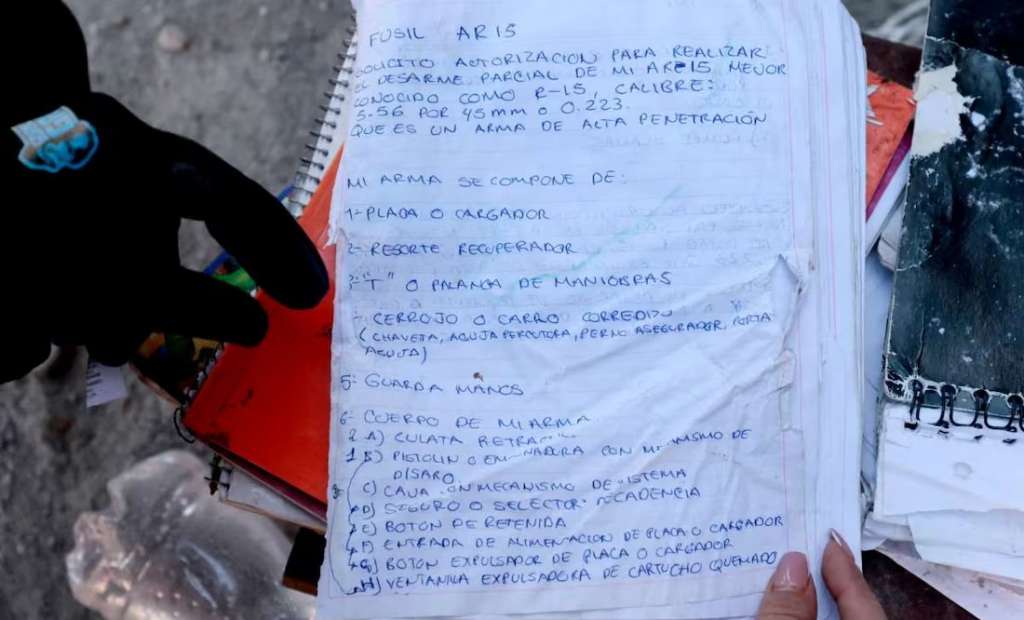 FUSIL AR15
SOLICITO AUTORIZACION PARA REALIZAR
EL DESARME PARCIAL DE MI ARE15 MEJOR
CONOCIDO COMO R-15, CALIBRE:
5.56 POR 45 mm o 0.223.
QUE ES UN ARMA DE ALTA PENETRACIÓN
MI ARMA SE COMPONE DE:
1- PLACA O CARGADOR
2- RESORTE RECUPERADOR
3- "T" O PALANCA DE MANIOBRAS
- CERROJO O CARRO CORREDIZO
(CHAVETA, AGUJA PERCUTORA, PERNO ASEGURADOR, PORTA
AGUJA)
5- GUARDA MANOS
6- CUERPO DE MI ARMA
2 A) CULATA RETRA
1 B) PISTOLIN O CON DE
DISARO.
C) CAJA CON MECANISMO DE SISTEMA
D) SEGURO O SELECTOR CADENCIA
E) BOTON DE RETENIDA
F) ENTRADA DE ALIMENTACION DE PLACA O CARGADOR
G) BOTON EXPULSADOR DE PLACA O CARGADOR
H) VENTANILA EXPULSADORA DE CARTUCHO QUEMADO